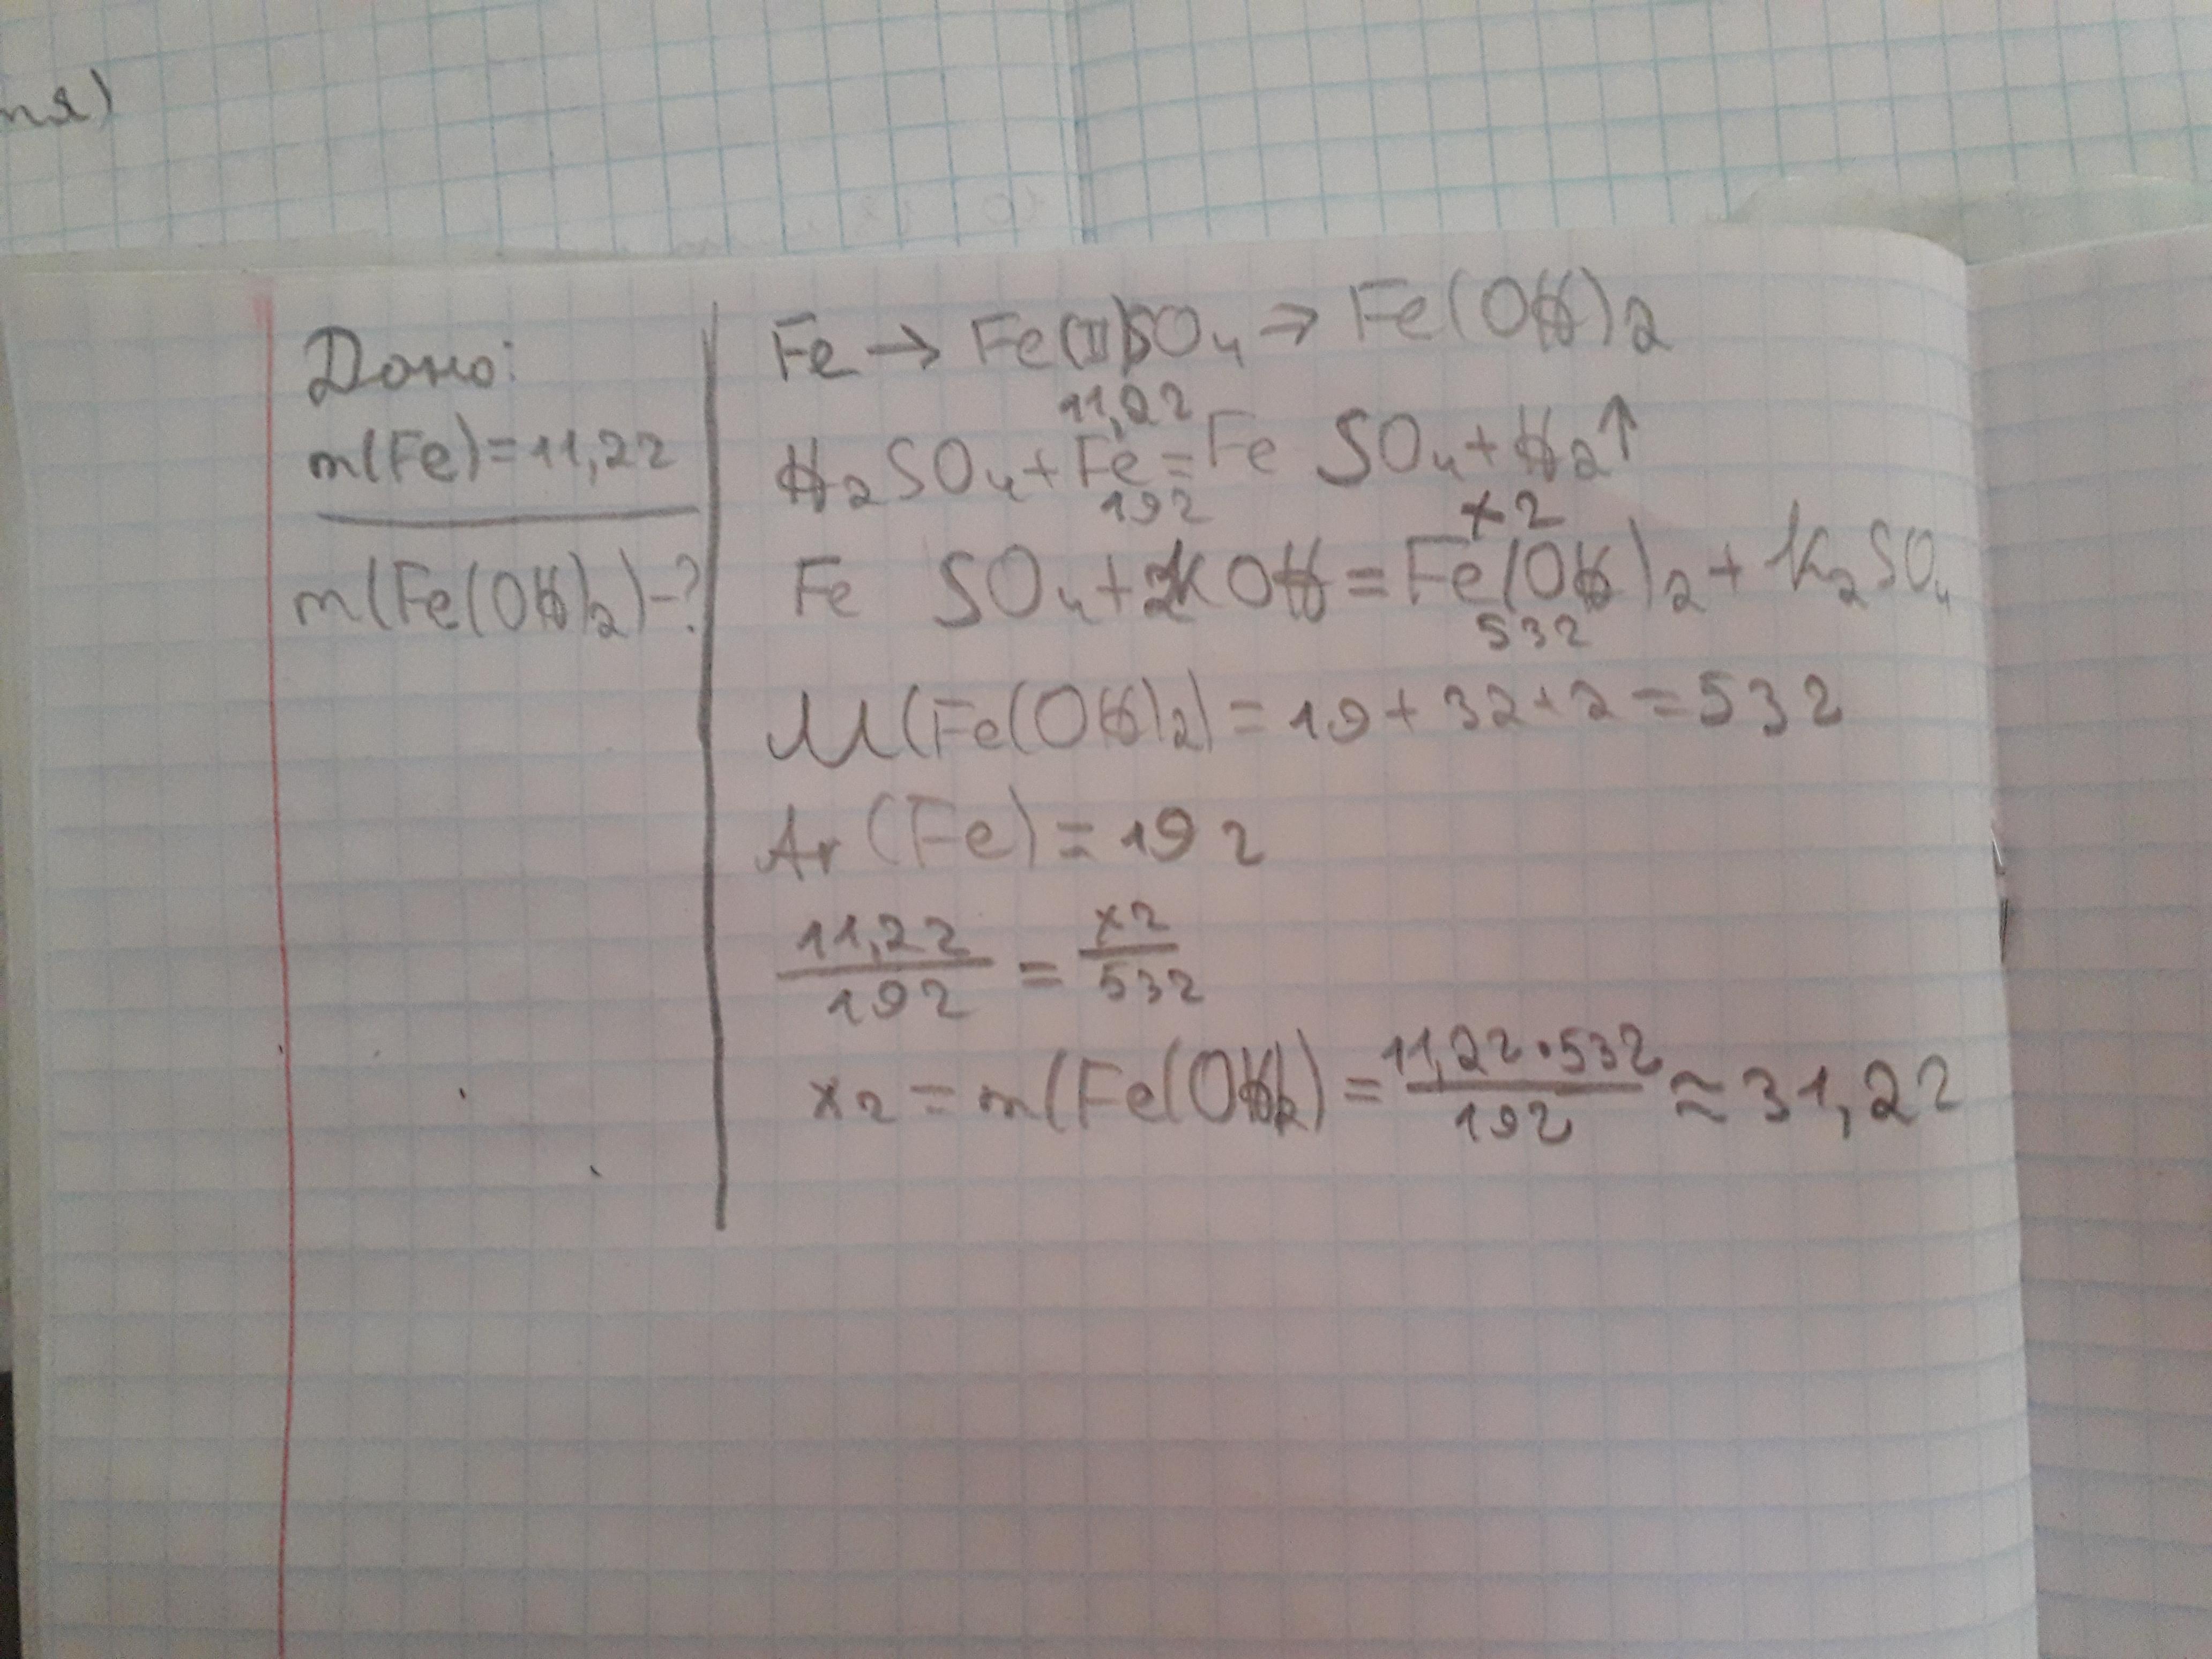 пя)
Дано:
m(Fe)=11,2г
m(Fe(OH)2)-?
Fe → Fe(II)SO4 → Fe(OH)2
11,2г
H2SO4+Fe=Fe SO4+H2↑
19г
xг
Fe SO4+2KOH=Fe(OH)2+K2SO4
53г
M(Fe(OH)2)=19+32+2=53г
Ar(Fe)=19г
11,2г/19г = xг/53г
xг=m(Fe(OH)2)=11,2г·53г/19г≈31,2г